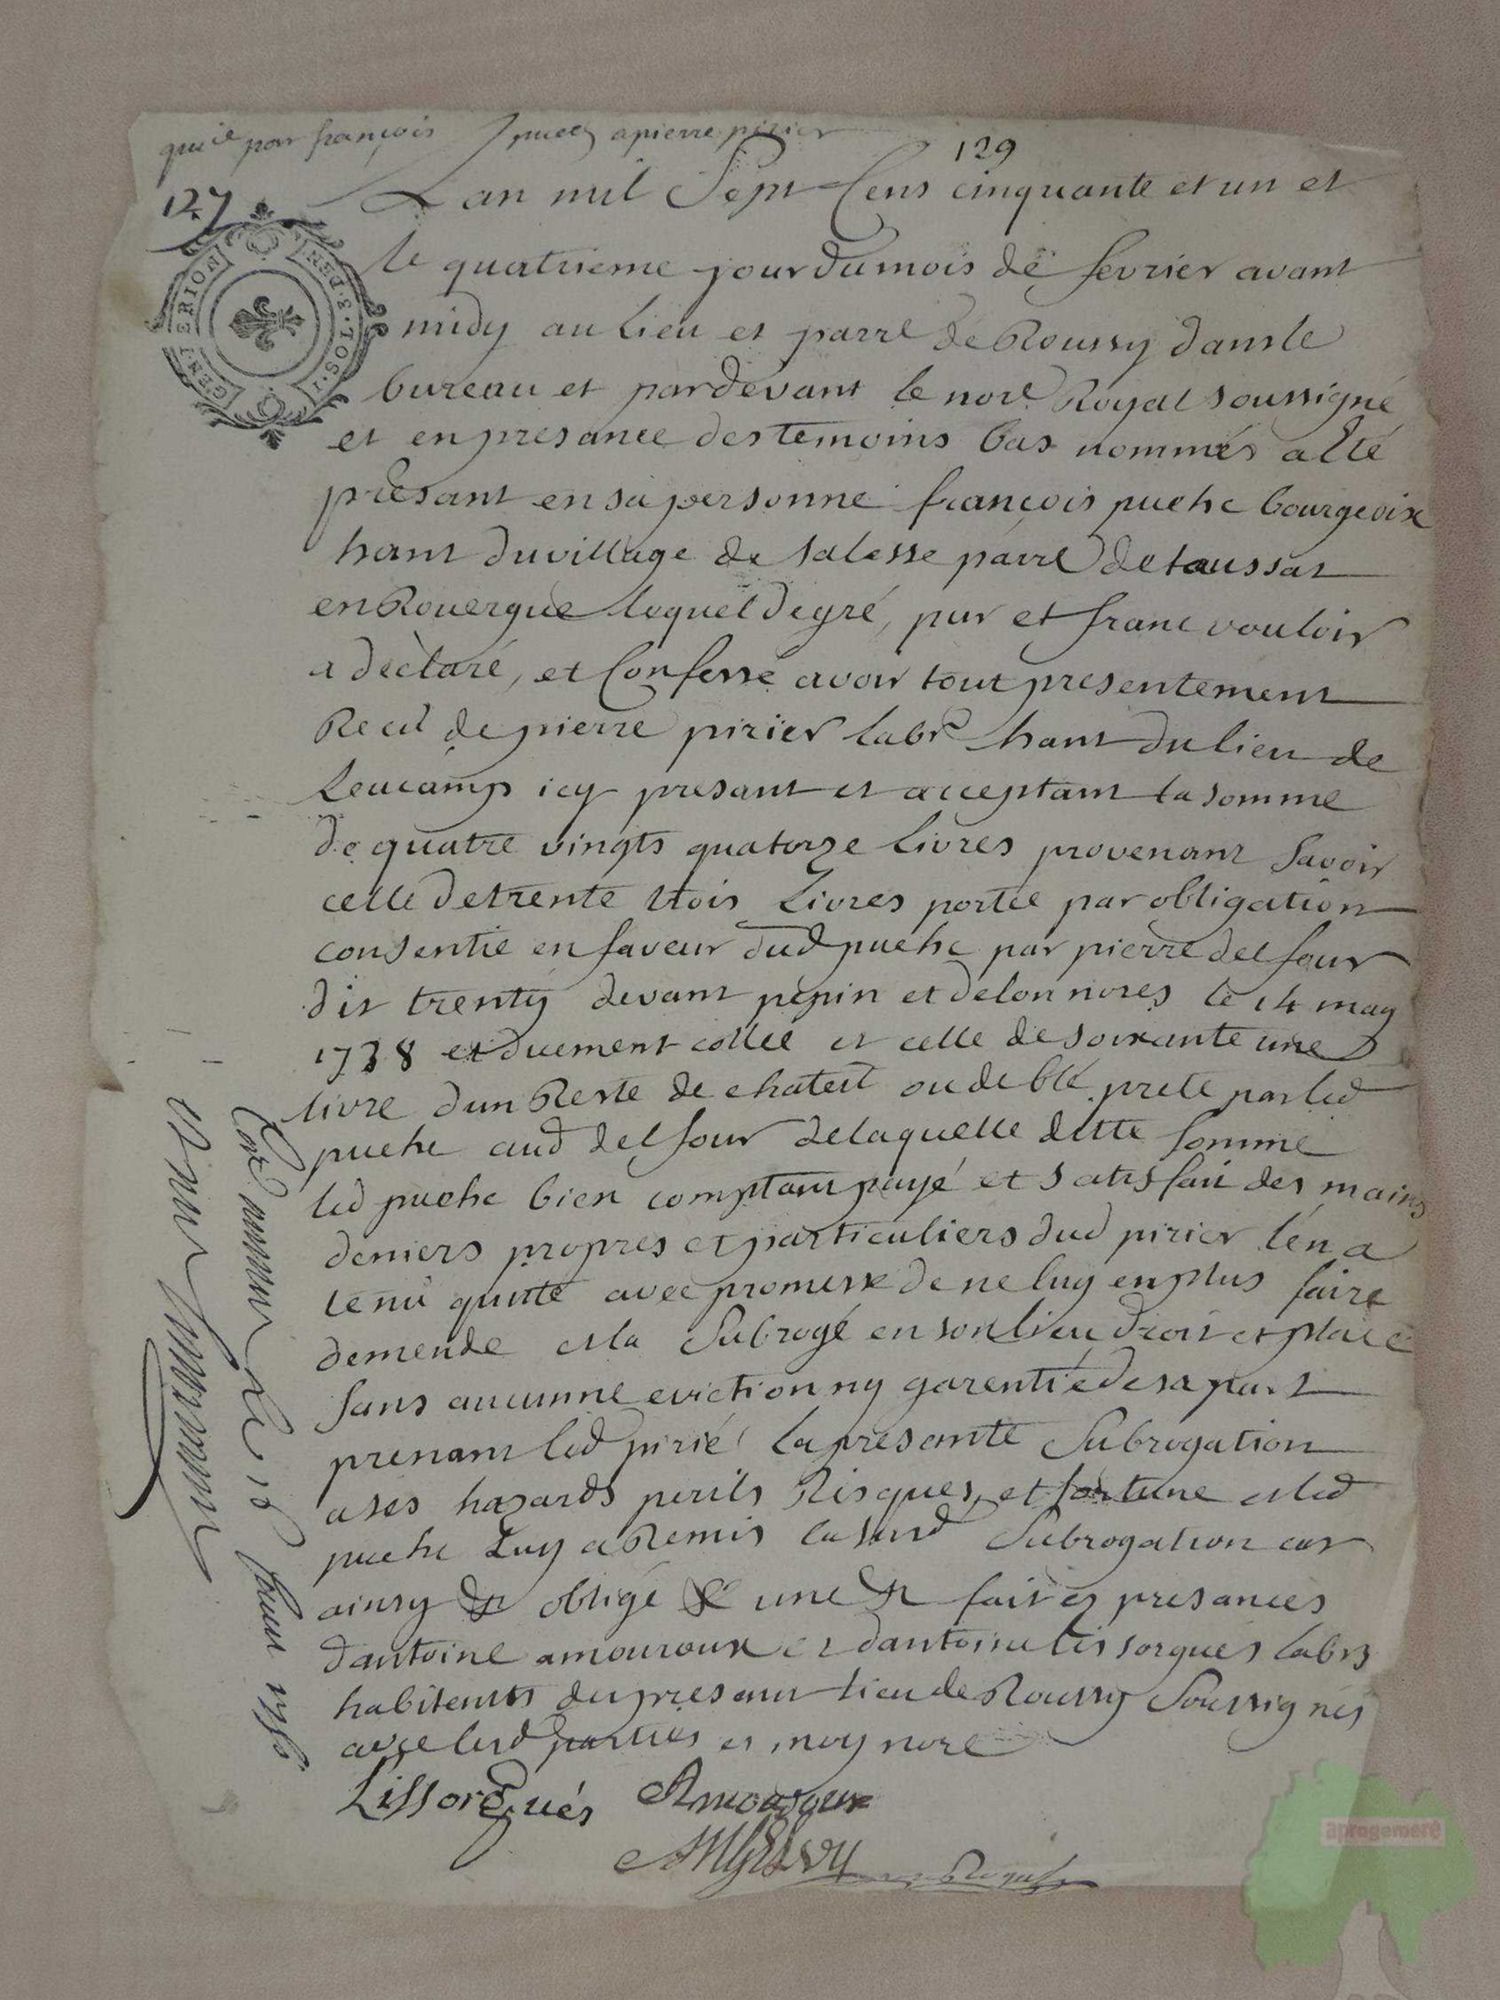 quice par françois puech a pierre pirier
129
127
GEN ERION
I·SOL·3·DEN
Lan mil Sept Cens cinquante et un et
le quatrieme jour du mois de fevrier avant
midy au lieu et parre de Roussy dans le
bureau et pardevant le nore Royal soussigné
et en presance des temoins bas nommés a Eté
presant en sa personne françois puehc bourgeoix
hant du village de salesse parre de taussat
en Rouergue lequel de gré, pur et franc vouloir
a declaré, et Confessé avoir tout presentement
Receu de pierre pirier labr hant du lieu de
Leucamp icy presant et acceptant la somme
de quatre vingts quatorze livres provenant savoir
celle de trente trois Livres portée par obligation
consentie en faveur dud puehc par pierre delfour
dit trenty devant pepin et delon nores le 14 may
1738 et duement collée et celle de soixante une
livre dun Reste de chateil ou de blé prete par led
puehc aud delfour de laquelle ditte somme
led puehc bien comptant payé et satisfait des mains
deniers propres et particuliers dud pirier l'en a
tenu quitte avec promesse de ne luy en plus faire
demende et la Subrogé en son lieu droit et place
sans aucunne eviction ny garentie de sa part
prenant led pirié la presente Subrogation
a ses hazards perils Risques, et fortune et led
puehc Luy a Remis la susd Subrogation car
ainsy obligé une fait ez presances
d'antoine amouroux et d'antoine lissorgues labrs
habitents du presant lieu de Roussy Soussignés
avec lesd parties et moy nore
Lissorgués Amouroux
Royal
aprogemere